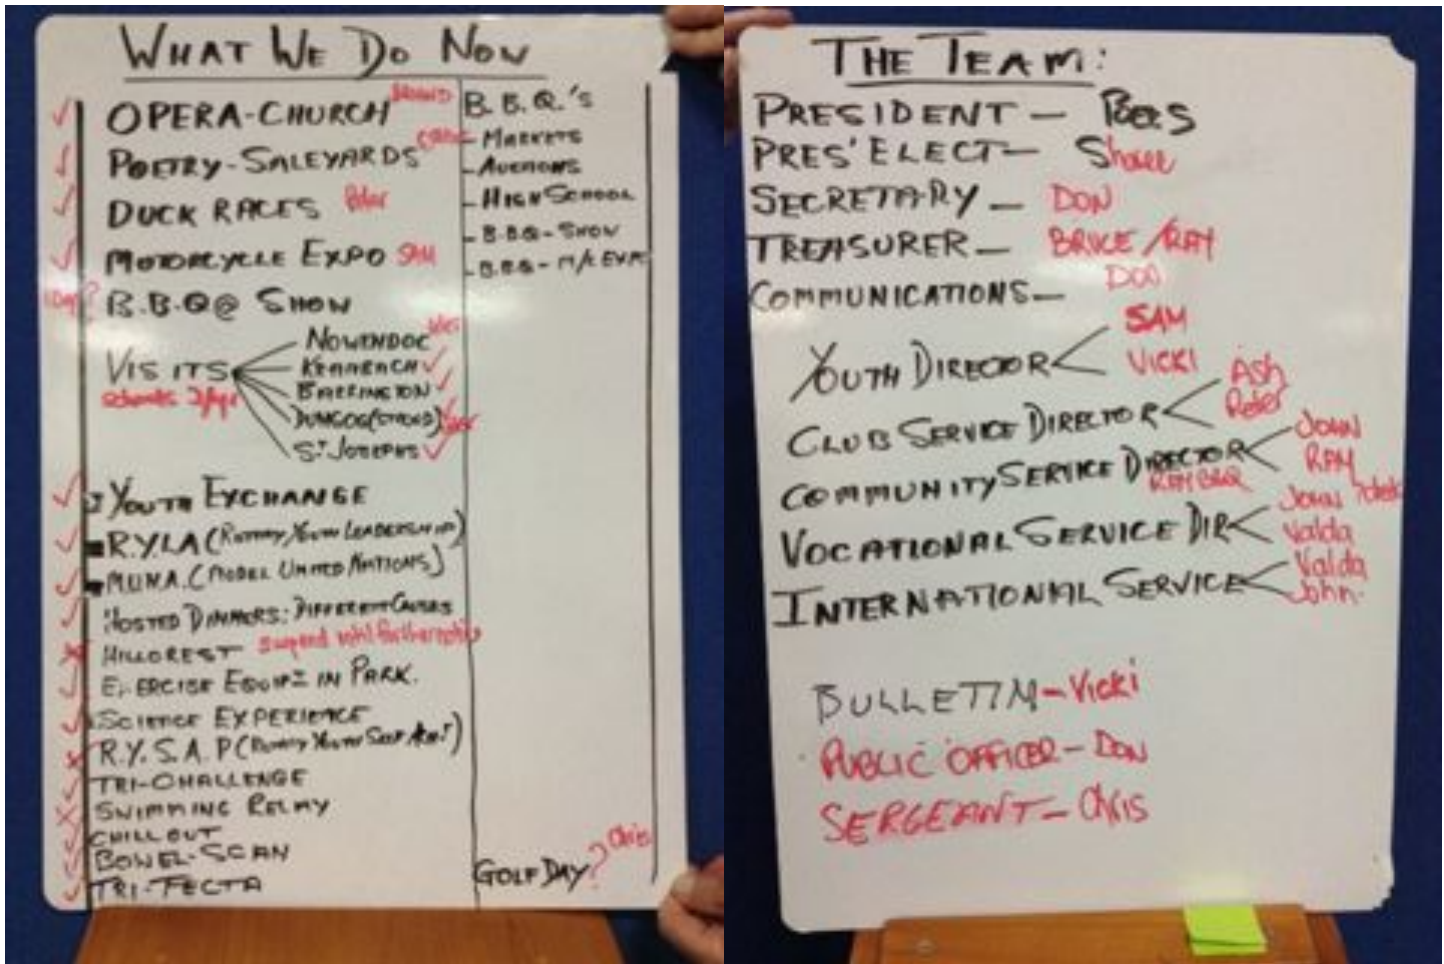 WHAT WE DO NOW
OPERA-CHURCH
POETRY-SALEYARDS
DUCK RACES Peter
MOTORCYCLE EXPO SAM
1 Day? B.B.Q @ SHOW
VISITS
schools 2/yr
NOWENDOC
BARRINGTON
DUNGOG (STROUD)
ST JOSEPHS
YOUTH EXCHANGE
R.Y.L.A (ROTARY YOUTH LEADERSHIP)
M.U.N.A. (MODEL UNITED NATIONS)
HOSTED DINNERS: DIFFERENT CAUSES
HILLCREST suspend until further notice
EXERCISE EQUIP IN PARK.
SCIENCE EXPERIENCE
R.Y.S.A.P (ROTARY YOUTH)
TRI-CHALLENGE
SWIMMING RELAY
CHILL OUT
BOWEL-SCAN
TRI-FECTA
B.B.Q.'S
- MARKETS
- AUCTIONS
- HIGH SCHOOL
- B.B.Q - SHOW
- B.B.Q - M/C EXPO
GOLF DAY? Chris
THE TEAM:
PRESIDENT -
PRES' ELECT -
SECRETARY - DON
TREASURER - BRUCE / RAY
COMMUNICATIONS - DON
YOUTH DIRECTOR
SAM
VICKI
CLUB SERVICE DIRECTOR
Ash
Peter
COMMUNITY SERVICE DIRECTOR
JOHN
RAY
RAY BBQ
VOCATIONAL SERVICE DIR
JOHN
Valda
INTERNATIONAL SERVICE
Valda
John.
BULLETIN - Vicki
PUBLIC OFFICER - DON
SERGEANT - Chris